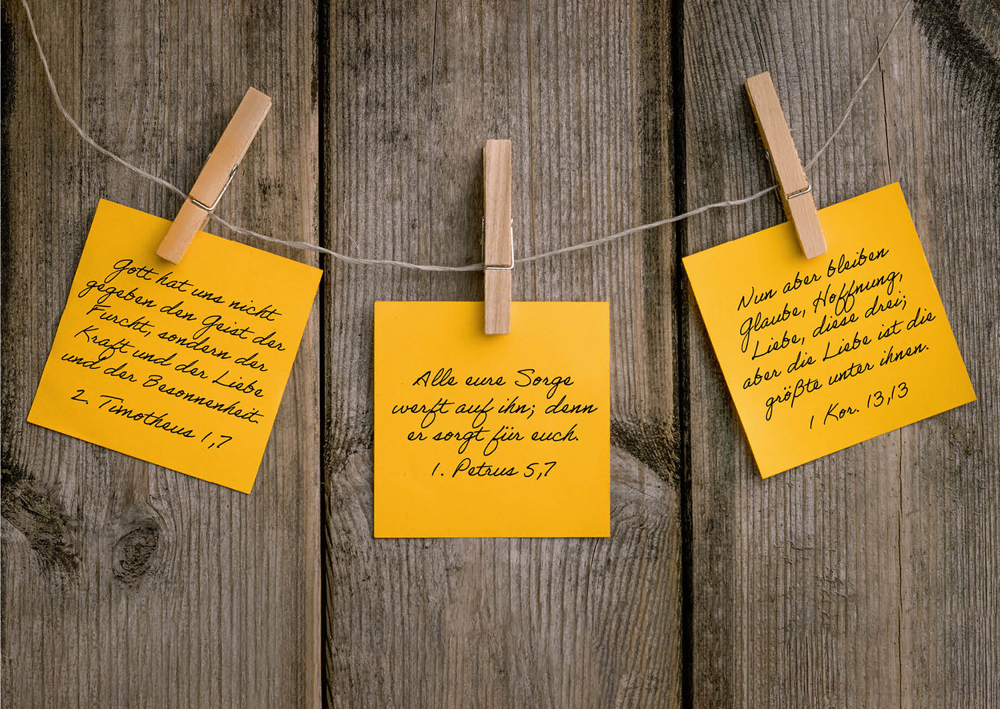 Gott hat uns nicht
gegeben den Geist der
Furcht, sondern der
Kraft und der Liebe
und der Besonnenheit.
2. Timotheus 1,7
Alle eure Sorge
werft auf ihn; denn
er sorgt für euch.
1. Petrus 5,7
Nun aber bleiben
Glaube, Hoffnung,
Liebe, diese drei;
aber die Liebe ist die
größte unter ihnen.
1 Kor. 13,13